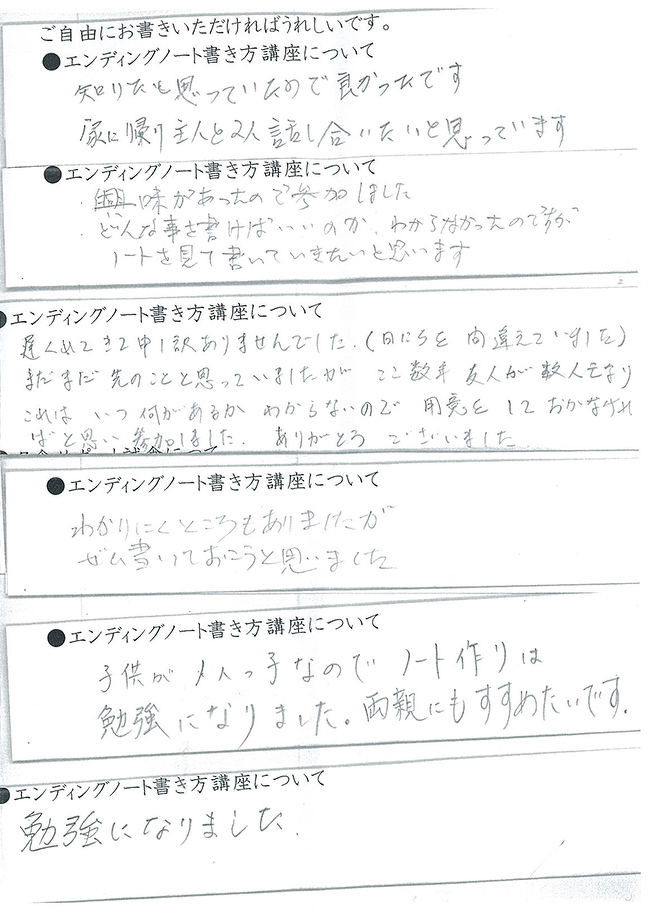 ご自由にお書きいただければうれしいです。
●エンディングノート書き方講座について
知りたと思っていたので良かったです
家に帰り主人と2人話し合いたいと思っています
●エンディングノート書き方講座について
・興味があったので参加しました
・どんな事を書けばいいのか、わからなかったのですが
ノートを見て書いていきたいと思います
●エンディングノート書き方講座について
遅くれてきて申し訳ありませんでした.(日にちを間違えていました)
まだまだ先のことと思っていましたが ここ数年 友人が数人亡なり
これは いつ何があるか わからないので 用意を して おかなけれ
ばと思い 参加しました. ありがとう ございました
●エンディングノート書き方講座について
わかりにくところもありましたが
ぜひ書いておこうと思いました
●エンディングノート書き方講座について
子供が1人っ子なので ノート作りは
勉強になりました。両親にもすすめたいです.
●エンディングノート書き方講座について
勉強になりました.